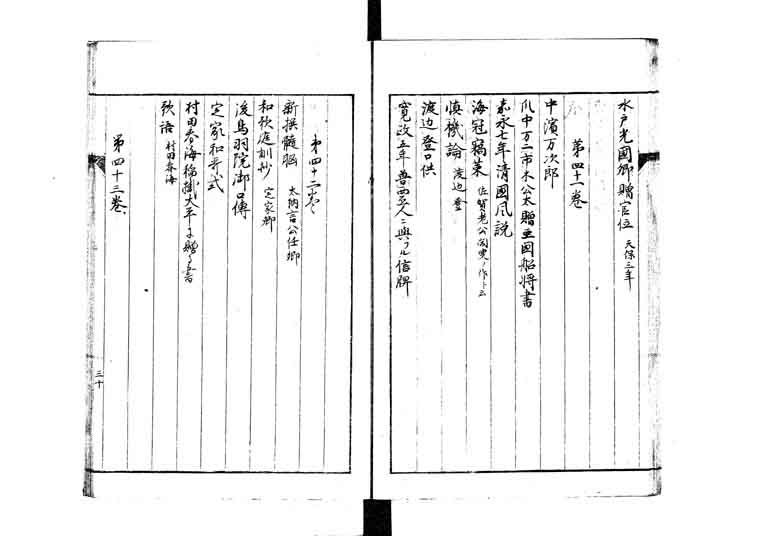 水戸光國卿贈官位 天保三年
第四十一巻
中濱万次郎
嘉永七年清國風説
海冠窃策 佐賀老公閑叟ノ作ト云
慎機論 渡辺登
渡辺登口供
寛政五年魯西亜人ニ與フル信牌
第四十二巻
新撰髄脳 大納言公任卿
和歌庭訓抄 定家卿
後鳥羽院御口傳
定家和哥式
村田春海稲掛大平に贈る書
歌語 村田春海
第四十三巻
三十